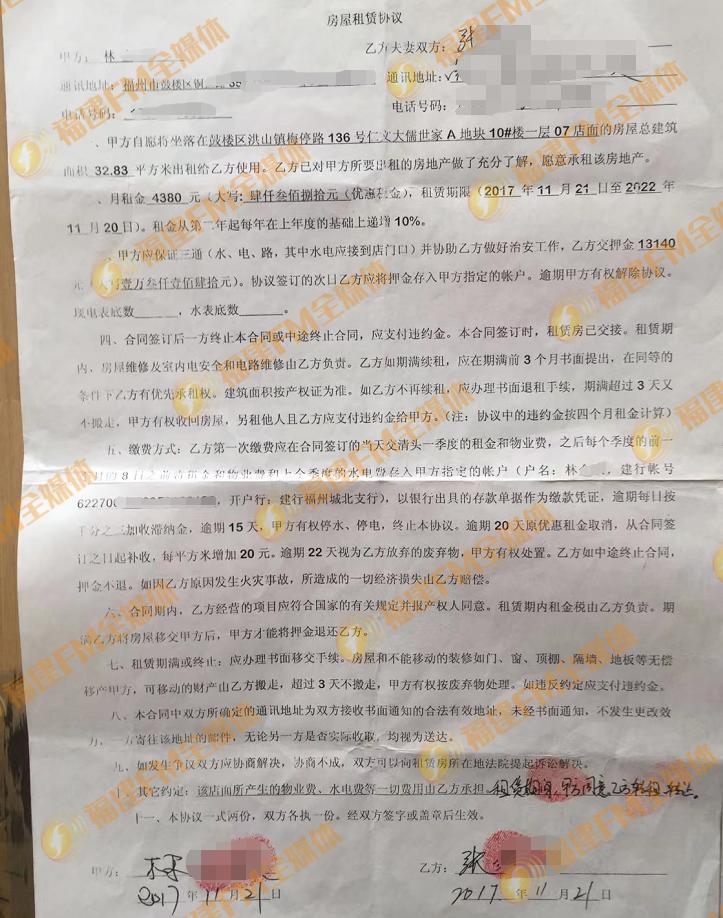 房屋租赁协议
甲方：林
乙方夫妻双方：张
通讯地址：福州市鼓楼区铜
通讯地址：
电话号码：
电话号码：
、甲方自愿将坐落在鼓楼区洪山镇梅亭路 136 号仁文大儒世家 A 地块 10#楼一层 07 店面的房屋总建筑
面积 32.83 平方米出租给乙方使用。乙方已对甲方所要出租的房地产做了充分了解，愿意承租该房地产。
、月租金 4380 元（大写：肆仟叁佰捌拾元（优惠租金），租赁期限（2017 年 11 月 21 日至 2022 年
11 月 20 日）。租金从第二年起每年在上年度的基础上递增 10%。
、甲方应保证三通（水、电、路，其中水电应接到店门口）并协助乙方做好治安工作，乙方交押金 13140
元（大写壹万叁仟壹佰肆拾元）。协议签订的次日乙方应将押金存入甲方指定的帐户。逾期甲方有权解除协议。
现电表底数______，水表底数______。
四、合同签订后一方终止本合同或中途终止合同，应支付违约金。本合同签订时，租赁房已交接。租赁期
内，房屋维修及室内电安全和电路维修由乙方负责。乙方如期满续租，应在期满前 3 个月书面提出，在同等的
条件下乙方有优先承租权。建筑面积按产权证为准。如乙方不再续租，应办理书面退租手续，期满超过 3 天又
不搬走，甲方有权收回房屋，另租他人且乙方应支付违约金给甲方。（注：协议中的违约金按四个月租金计算）
五、缴费方式：乙方第一次缴费应在合同签订的当天交清头一季度的租金和物业费，之后每个季度的前一
月的 8 日之前 租金和物业费和上个季度的水电费存入甲方指定的帐户（户名：林 ，建行帐号
622700 ，开户行：建行福州城北支行），以银行出具的存款单据作为缴款凭证，逾期每日按
千分之三加收滞纳金，逾期 15 天，甲方有权停水、停电，终止本协议。逾期 20 天原优惠租金取消，从合同签
订之日起补收，每平方米增加 20 元。逾期 22 天视为乙方放弃的废弃物，甲方有权处置。乙方如中途终止合同，
押金不退。如因乙方原因发生火灾事故，所造成的一切经济损失由乙方赔偿。
六、合同期内，乙方经营的项目应符合国家的有关规定并报产权人同意。租赁期内租金税由乙方负责。期
满乙方将房屋移交甲方后，甲方才能将押金退还乙方。
七、租赁期满或终止：应办理书面移交手续。房屋和不能移动的装修如门、窗、顶棚、隔墙、地板等无偿
移产甲方，可移动的财产由乙方搬走，超过 3 天不搬走，甲方有权按废弃物处理。如违反约定应支付违约金。
八、本合同中双方所确定的通讯地址为双方接收书面通知的合法有效地址，未经书面通知，不发生更改效
力，一方寄往该地址的邮件，无论另一方是否实际收取，均视为送达。
九、如发生争议双方应协商解决，协商不成，双方可以向租赁房所在地法院提起诉讼解决。
十、其它约定：该店面所产生的物业费、水电费等一切费用由乙方承担。租赁期间，甲方同意乙方转租、转让。
十一、本协议一式两份，双方各执一份。经双方签字或盖章后生效。
甲方：林
乙方：张
2017 年 11 月 21 日
2017 年 11 月 21 日
福建FM全媒体